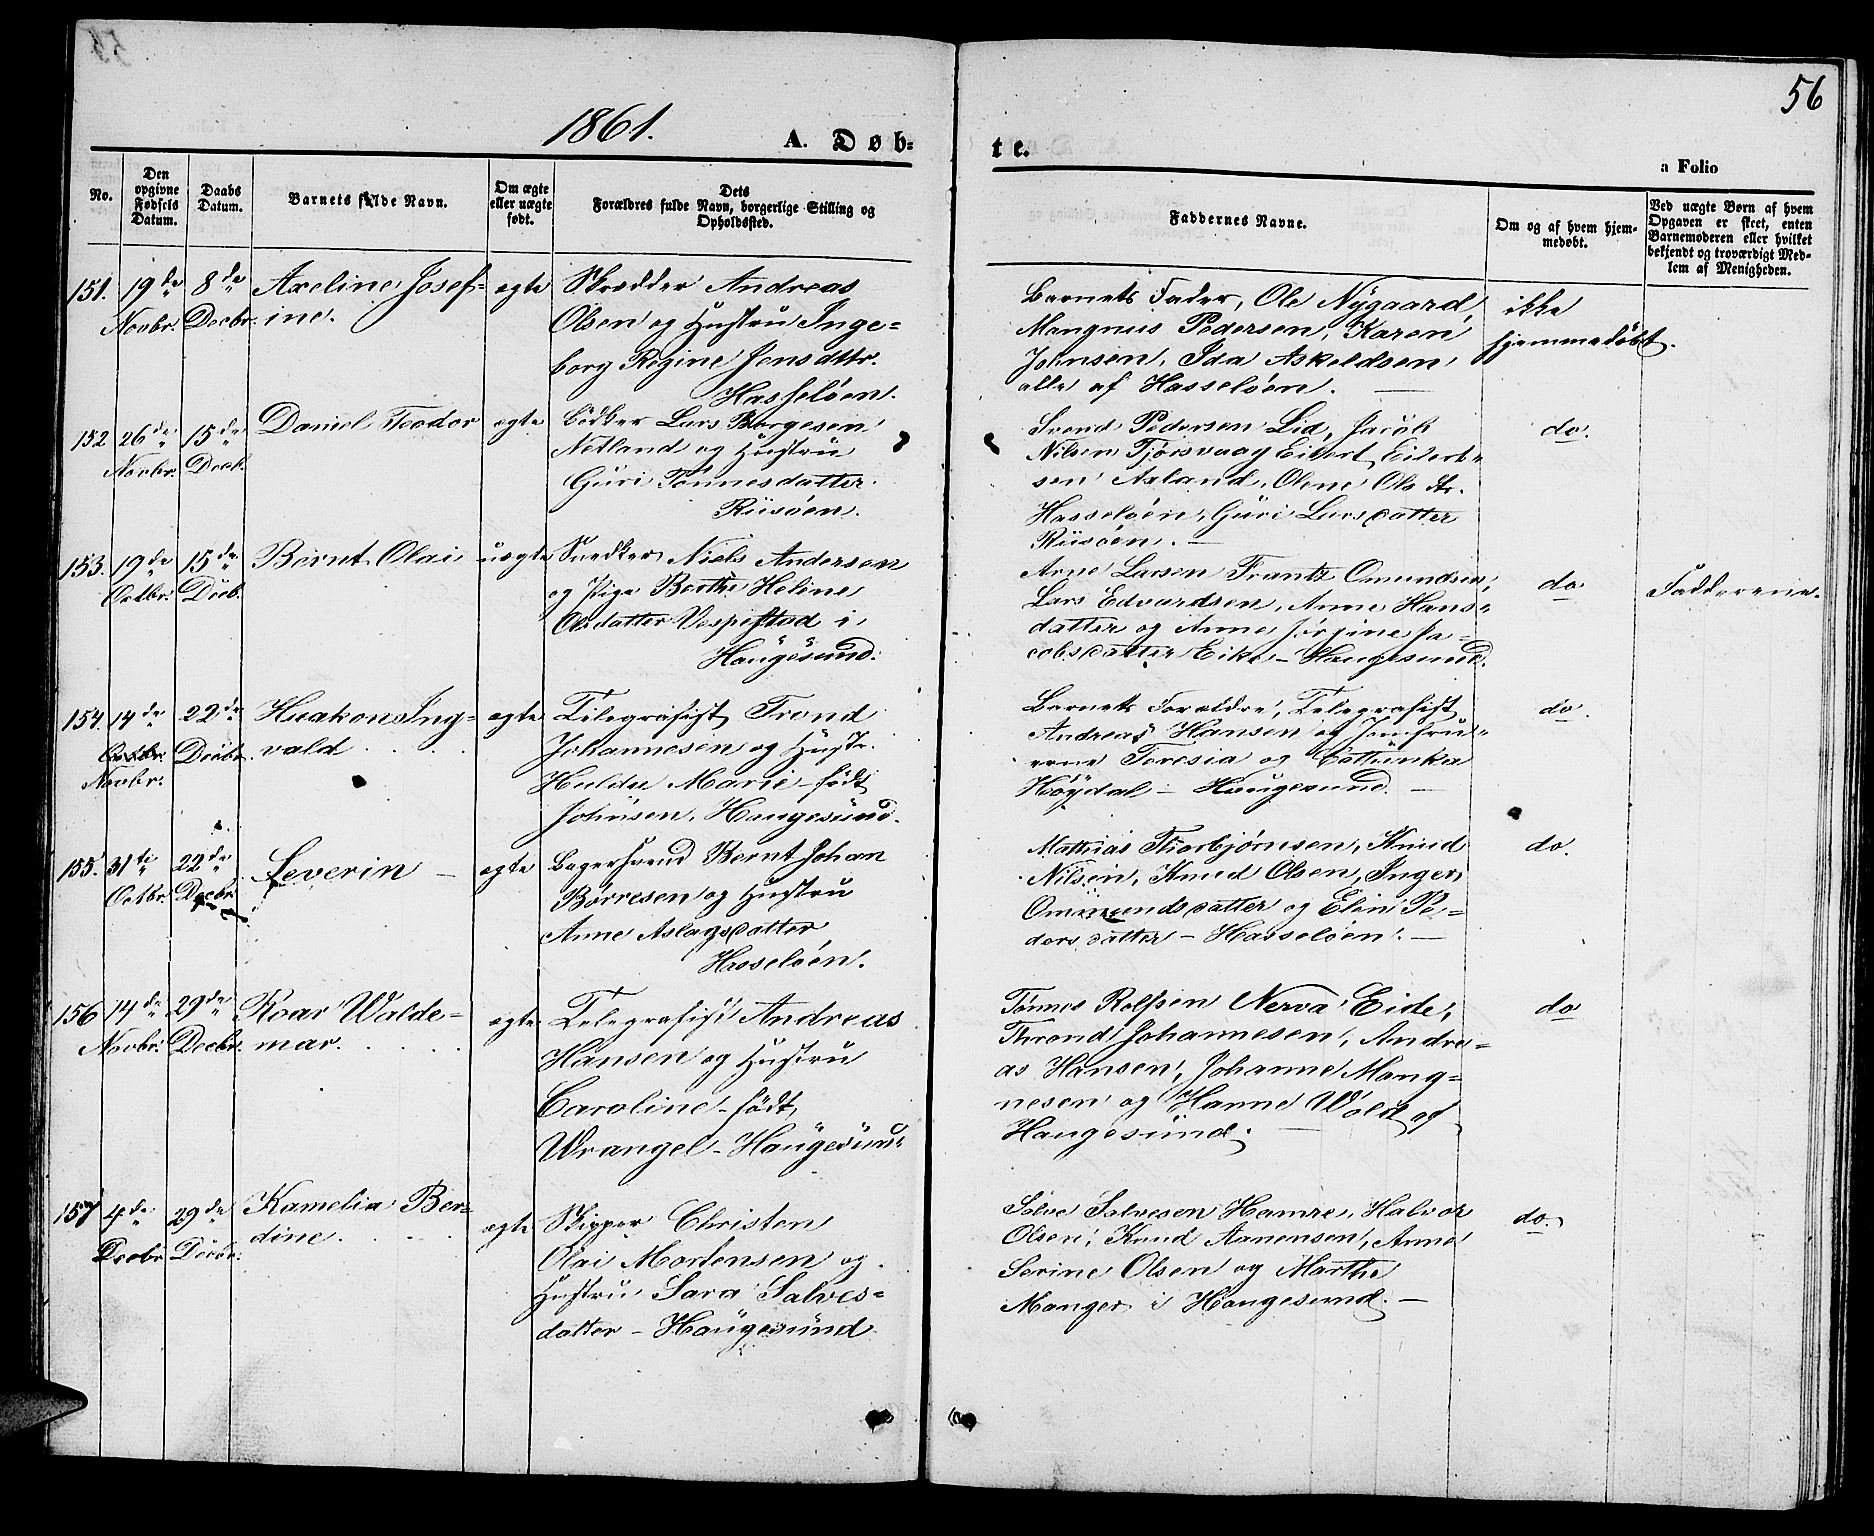 56
1861.
A. Døb-
te.
a Folio
No.
Den opgivne Fødsels Datum.
Daabs Datum.
Barnets fulde Navn.
Om ægte eller uægte født.
Dets Forældres fulde Navn, borgerlige Stilling og Opholdssted.
Faddernes Navne.
Om og af hvem hjem-
medøbt.
Ved uægte Børn af hvem
Opgaven er skeet, enten
Barnemoderen eller hvilket
bekjendt og troværdigt Med-
lem af Menigheden.
151. 19de 8de Axeline Josef- ægte Skrædder Andreas
Novbr. Decbr. ine. Olsen og Hustru Inge-
borg Regine Jensdttr.
Hasseløen.
Barnets Fader, Ole Nygaard, ikke
Mangnus Pedersen, Karen hjemmedøbt.
Johnsen, Ida Askeldsen,
alle af Hasseløen.
152 26de 15de Daniel Teodor ægte Bødker Lars Borgesen
Novbr. Decb. Netland og Hustru
Guri Tønnesdatter.
Riisøen.
Svend Pedersen Lid, Jacob do.
Nilsen Tjørsvaag Eilert Eilert-
sen Axland, Olene Ols dtr.
Hasseløen, Guri Larsdatter
Riisøen.
153. 19de 15de Bernt Olai uægte Snedker Niels Andersen
Octbr. Decb. og Pige Berthe Heline
Olsdatter Vespestad i
Haugesund.
Arne Larsen Frantz Omundsen, do Fadderene.
Lars Edvardsen, Anne Hans-
datter og Anne Jørgine Ja-
cobsdatter Eike - Haugesund.
154 14de 22de Haakon Ing- ægte Telegrafist Trond
Octbr. Decbr. vald Johannesen og Hustr.
Novbr. Hulda Marie født
Johnsen, Haugesund.
Barnets Forældre, Telegrafist do.
Andreas Hansen og Jomfru-
erne Teresia og
Høydal - Haugesund.
155. 31te 22de Severin - ægte Bagersvend Bernt Johan
Octbr. Decbr. Børresen og Hustru
Anne Aslagsdatter
Hasseløen.
Mathias Thorbjørnsen, Knud do.
Nilsen, Knud Olsen, Inger
Ommundsdatter og Elen Pe-
dersdatter - Hasseløen.
156 14de 29de Roar Walde- ægte Telegrafist Andreas
Novbr. Decbr. mar. Hansen og Hustru
Caroline født
Wrangel - Haugesund
Tønnes Rolfsen Nerva Eide, do
Thrond Johannesen, Andre-
as Hansen, Johanne Mang-
nesen og Hanne Wold af
Haugesund.
157 4de 29de Kamelia Ber- ægte Skipper Christen
Decbr. Decbr. dine. Olai Mortensen og
Hustru Sara Salves-
datter - Haugesund
Salve Salvesen Hamre, Halvor do.
Olsen, Knud Aanensen, Anne
Serine Olsen og Marthe
Manger i Haugesund.